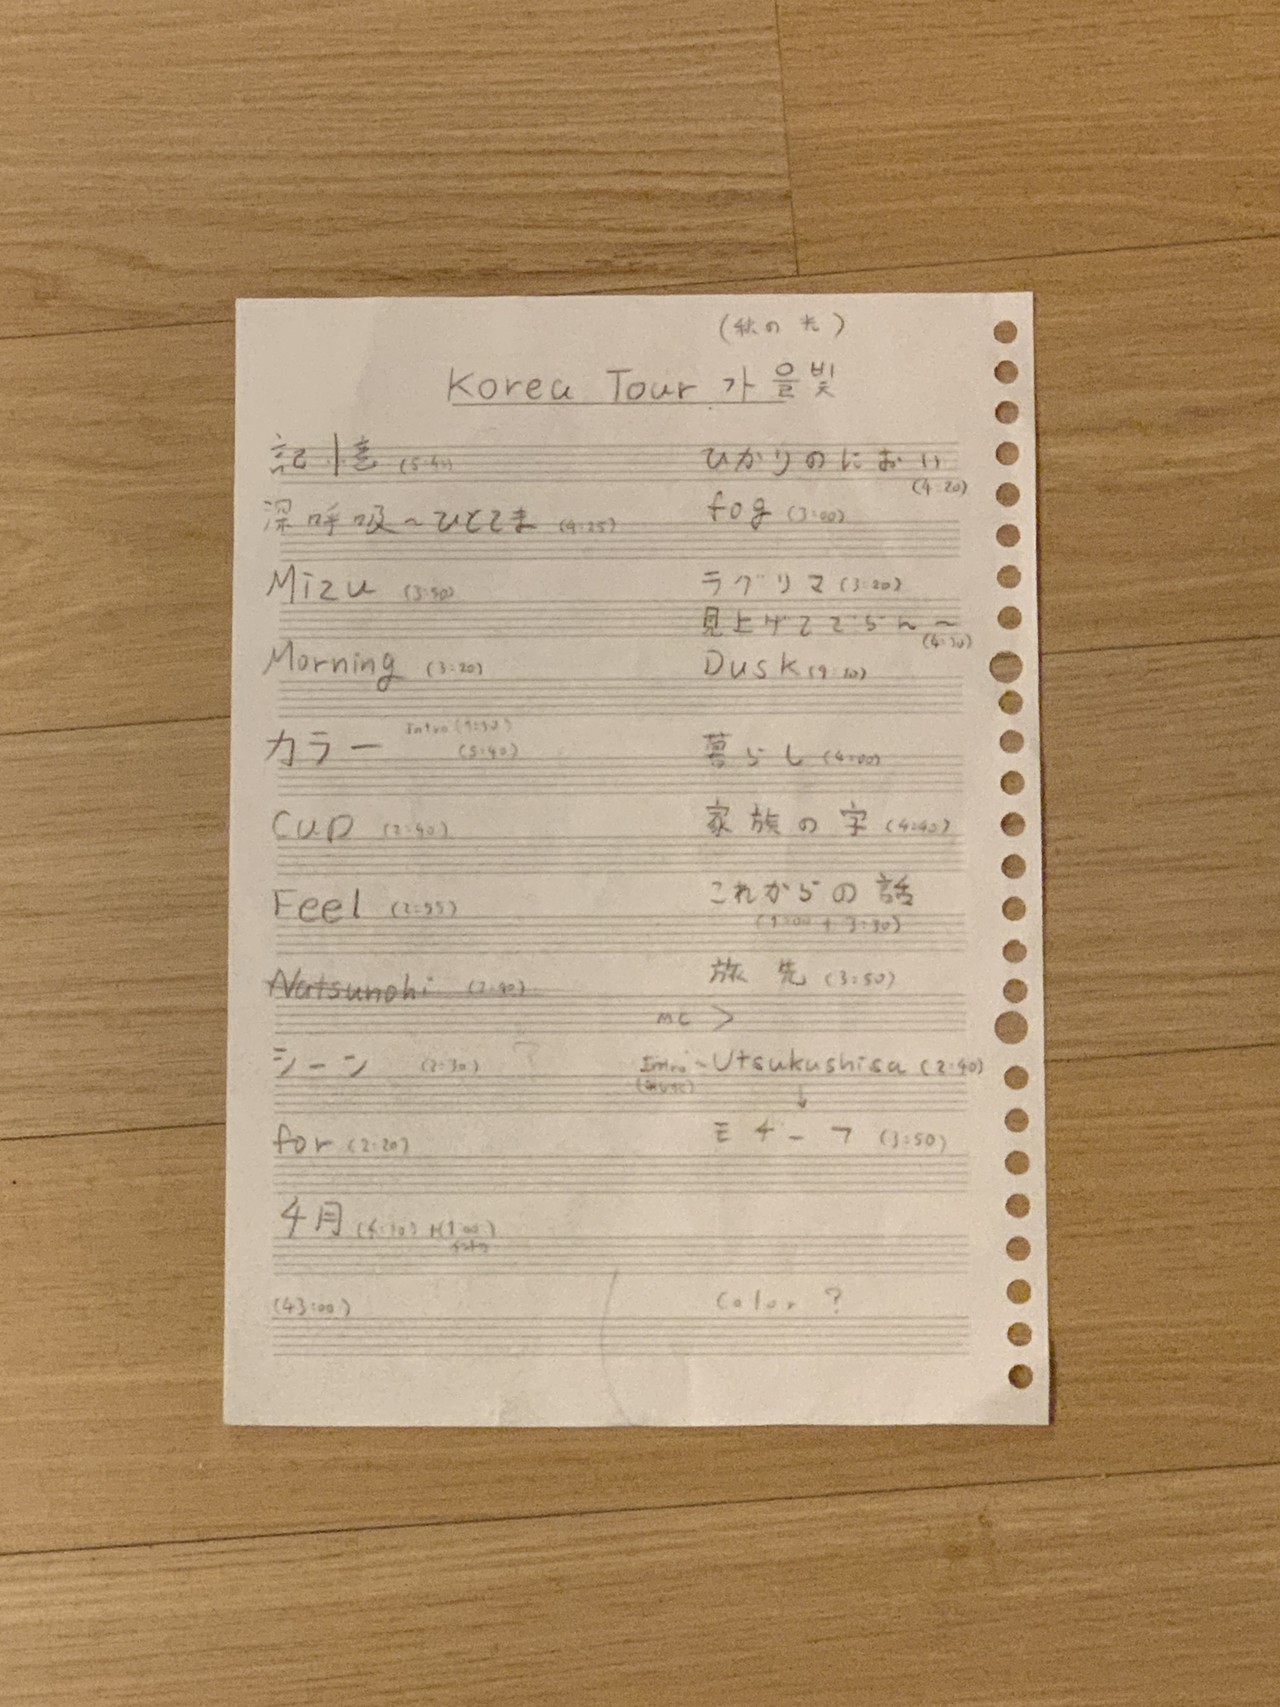 (秋の光)
Korea Tour 가을빛
記憶
深呼吸~ひとこま (4:25)
Mizu (3:50)
Morning (3:20)
カラー Intro
(5:40)
Cup (2:40)
Feel (2:55)
Natsunohi (2:40)
シーン (2:30) ?
for (2:20)
4月
(43:00)
ひかりのにおい
(4:20)
fog (3:00)
ラグリマ (3:20)
見上げてごらん~
Dusk
暮らし (4:00)
家族の字 (4:40)
これからの話
旅先 (3:50)
MC >
Intro~Utsukushisa (2:40)
↓
モチーフ (3:50)
Color ?